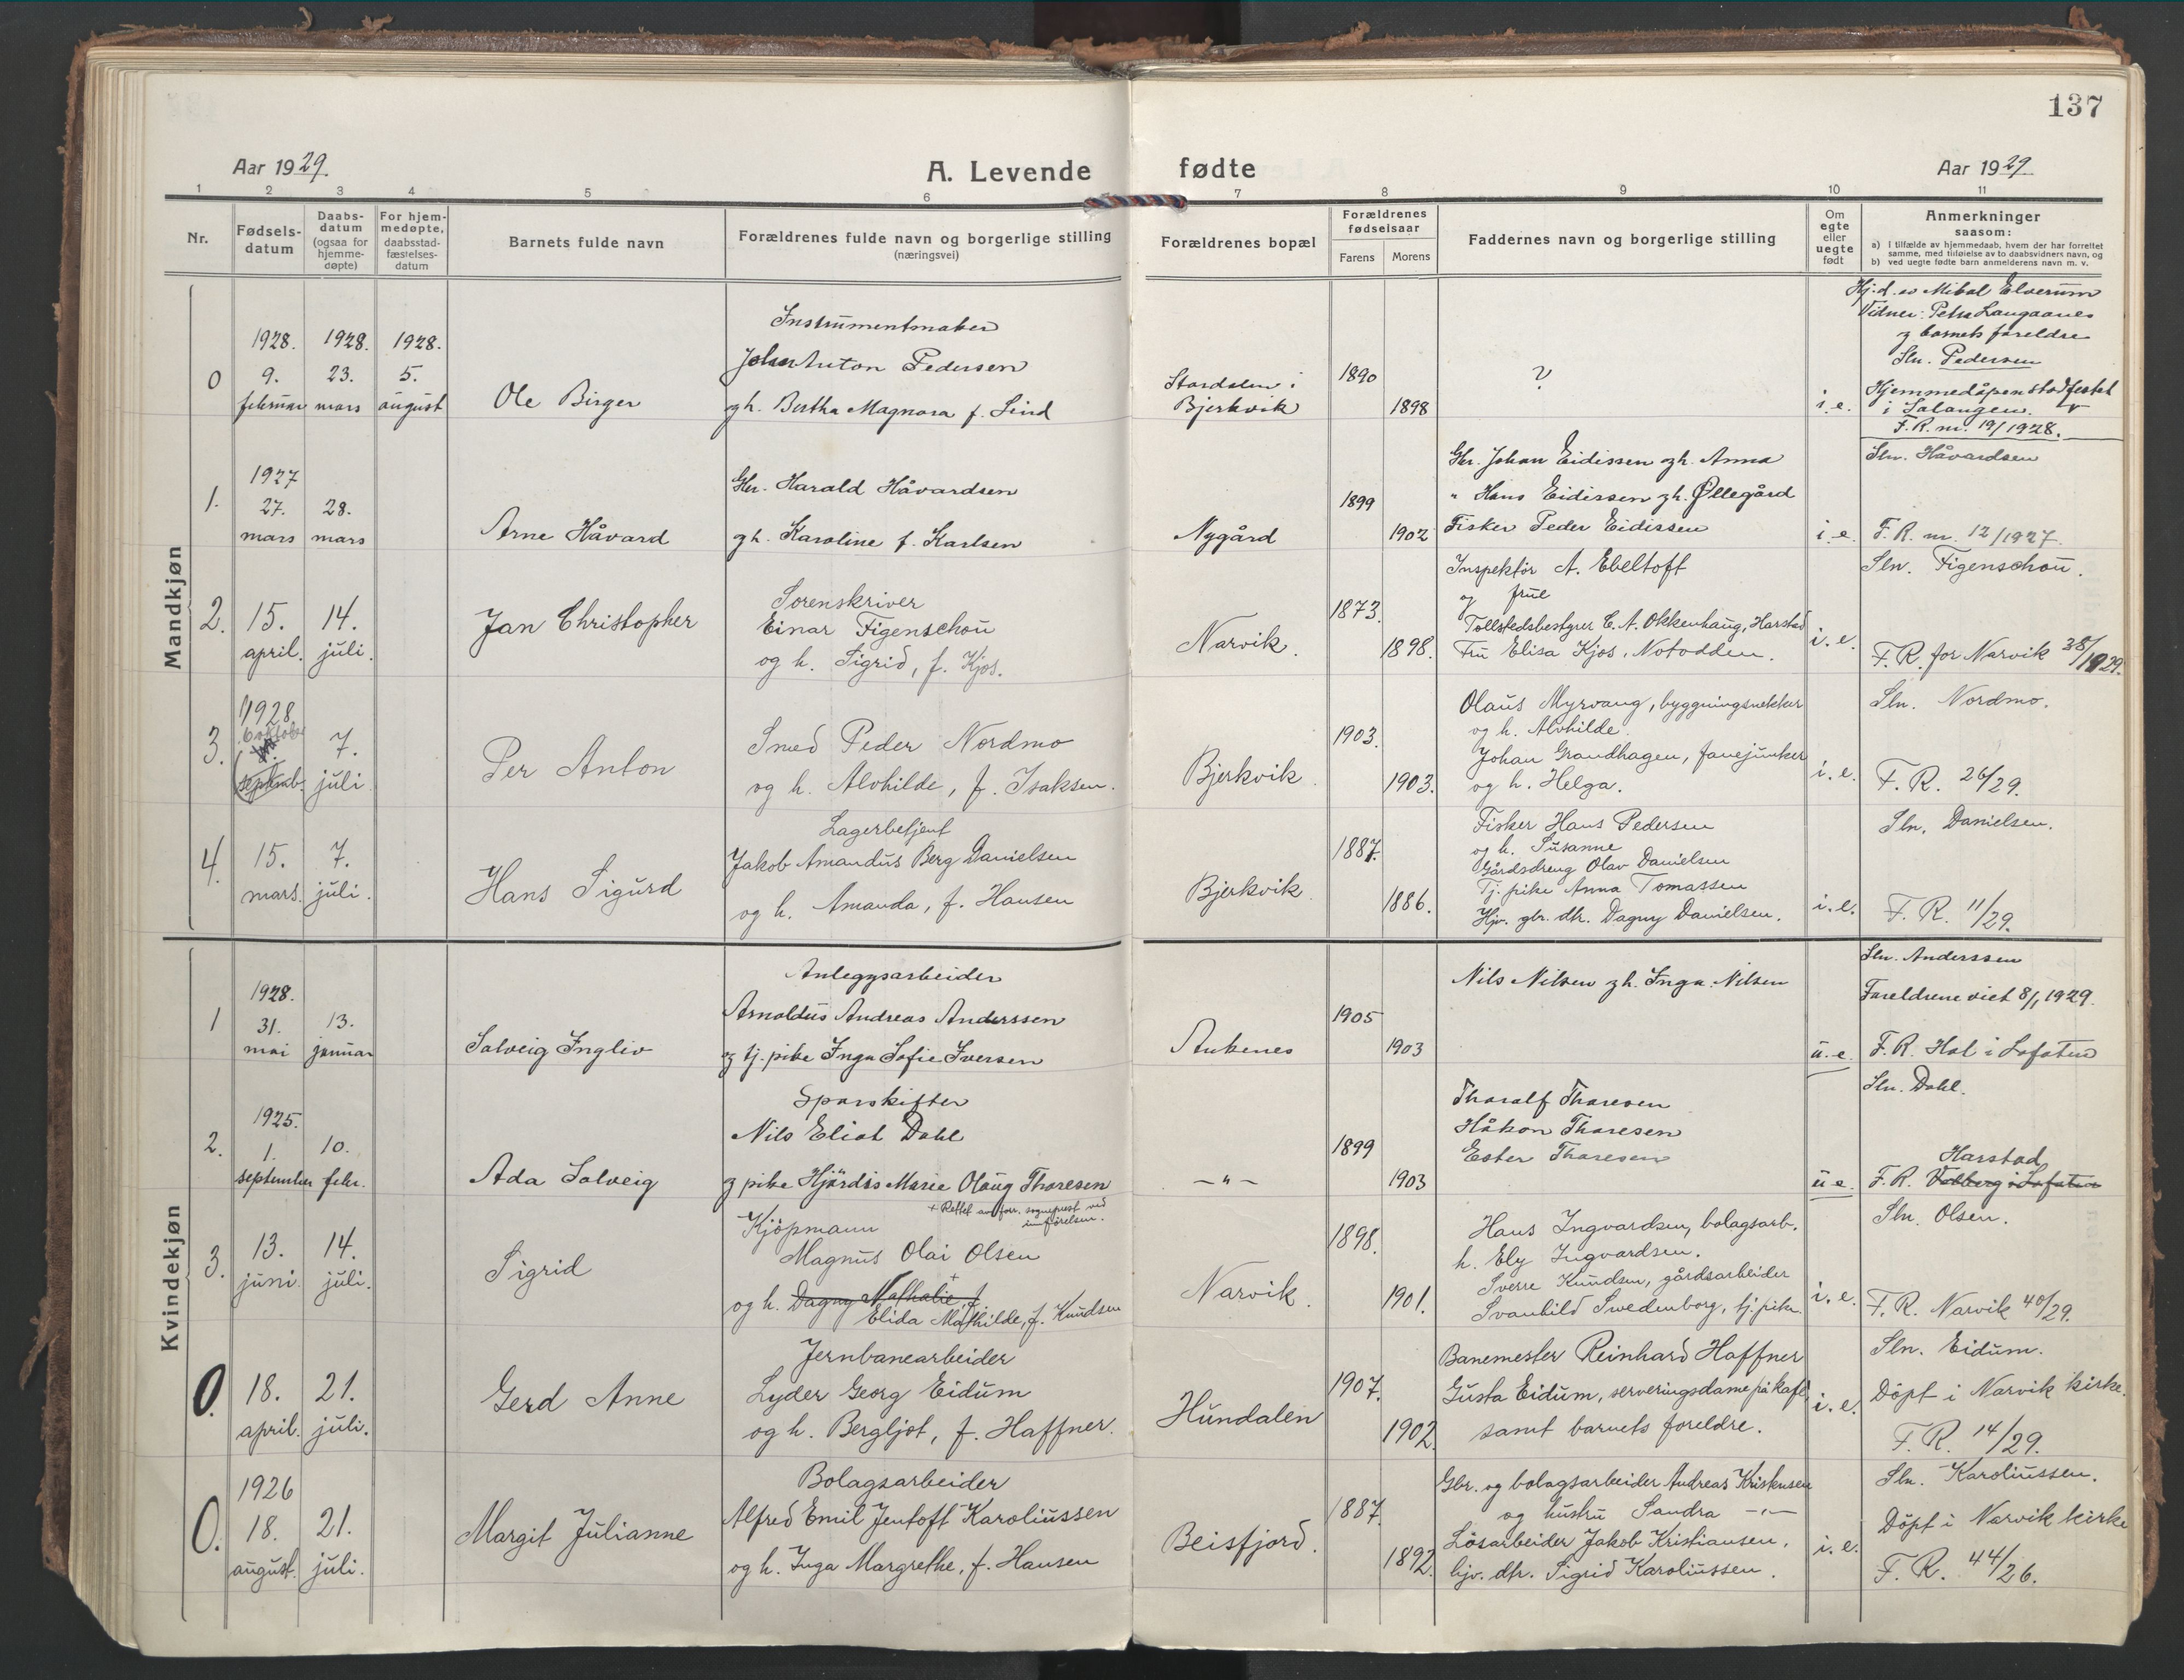 137
Aar 1929.
A. Levende fødte
Aar 1929.
1 2 3 4 5 6 7 8 9 10 11
Nr.
Fødsels-
datum
Daabs-
datum
(ogsaa for
hjemme-
døpte)
For hjem-
medøpte,
daabsstad-
fæstelses-
datum
Barnets fulde navn
Forældrenes fulde navn og borgerlige stilling
(næringsvei)
Forældrenes bopæl
Forældrenes
fødselsaar
Farens Morens
Faddernes navn og borgerlige stilling
Om
egte
eller
uegte
født
Anmerkninger
saasom:
a) I tilfælde av hjemmedaab, hvem der har forrettet
samme, med tilføielse av to daabsvidners navn, og
b) ved uegte fødte barn anmelderens navn m. v.
Mandkjøn
0
1928.
9.
februar
1928.
23.
mars
1928.
5.
august
Ole Birger
Instrumentmaker
Johan Anton Pedersen
gh. Bertha Magnora f. Lind
Stordalen i
Bjerkvik
1890
1898
?
i. e.
Hj. d. av Mikal Elverum
Vidner: Petra Langaanes
g barnets foreldre
Sln. Pedersen
Hjemmedåpen stadfestet
i Salangen.
F. R. nr. 19/1928.
1.
1927
27.
mars
28.
mars
Arne Håvard
Gbr. Harald Håvardsen
gh. Karoline f. Karlsen
Nygård
1899
1902
Gbr. Johan Eidissen gh. Anna
" Hans Eidissen gh. Øllegård
Fisker Peder Eidissen
i. e.
Sln. Håvardsen
F. R. nr. 12/1927.
2.
15.
april.
14.
juli.
Jan Christopher
Sorenskriver
Einar Figenschou
og h. Sigrid, f. Kjos.
Narvik.
1873.
1898.
Inspektør A. Ebeltoft
og frue
Tollstedsbestyrer C. A. Okkenhaug, Harstad
Fru Elisa Kjos, Notodden.
i. e.
Sln. Figenschou.
F. R. for Narvik 38/1929.
3.
1928
6 oktober
septemb.
7.
juli
Per Anton
Smed Peder Nordmo
og h. Alvhilde, f. Isaksen.
Bjerkvik.
1903.
1903.
Olaus Myrvang, bygningsnekker
og h. Alvhilde.
Johan Grandhagen, fanejunker
og h. Helga.
i. e.
Sln. Nordmo.
F. R. 26/29.
4.
15.
mars.
7.
juli.
Hans Sigurd
Lagerbetjent
Jakob Amandus Berg Danielsen
og h. Amanda, f. Hansen
Bjerkvik.
1887.
1886.
Fisker Hans Pedersen
og h. Susanne
Gårdsdreng Olav Danielsen
Tj. pike Anna Tomassen
Hjv. gbr. dtr. Dagny Danielsen.
i. e.
Sln. Danielsen.
F. R. 11/29.
Kvindekjøn
1
1928.
31.
mai
13.
januar
Solveig Ingliv
Anleggsarbeider
Arnoldus Andreas Anderssen
g tj. pike Inga Sofie Iversen
Ankenes
1905
1903
Nils Nilsen gh. Inga Nilsen
u. e.
Sln. Anderssen
Foreldrene viet 8/1 1929.
F. R. Hol i Lofoten
2.
1925.
1.
september
10.
febr.
Ada Solveig
Sporskifter
Nils Eliot Dahl
g pike Hjørdis Marie Olaug Thoresen
– " –
1899
1903
Thoralf Thoresen
Håkon Thoresen
Ester Thoresen
u e.
Sln. Dahl.
Harstad
F. R. Valberg i Lofoten
3.
13.
juni.
14.
juli.
Sigrid
+ Rettet av forr. sogneprest ved
innførelsen.
Kjøpmann
Magnus Olai Olsen
og h. Dagny Nathalie, f. +
Elida Mathilde, f. Knudsen
Narvik.
1898.
1901.
Hans Ingvardsen, bolagsarb.
h. Ely Ingvardsen.
Sverre Knudsen, gårdsarbeider
Svanhild Swedenborg, tj. pike.
i. e.
Sln. Olsen.
F. R. Narvik 40/29.
0.
18.
april.
21.
juli.
Gerd Anne
Jernbanearbeider
Lyder Georg Eidum
og h. Bergljot, f. Haffner.
Hundalen
1907.
1902.
Banemester Reinhard Haffner
Gusta Eidum, serveringsdame på kafé
samt barnets foreldre.
i. e.
Sln. Eidum.
Döpt i Narvik kirke.
F. R. 14/29.
0.
1926
18.
august.
21.
juli.
Margit Julianne
Bolagsarbeider
Alfred Emil Jentoft Karoliussen
og h. Inga Margrethe, f. Hansen
Beisfjord.
1887.
1892.
Gbr. og bolagsarbeider Andreas Kristensen
og hustru Sandra – " –
Lösarbeider Jakob Kristiansen.
hjv. dtr. Sigrid Karoliussen.
i. e.
Sln. Karoliussen.
Döpt i Narvik kirke
F. R. 44/26.